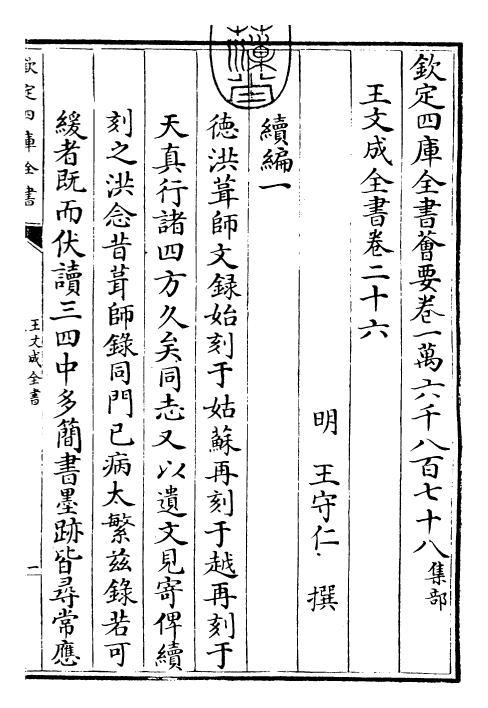 欽定四庫全書薈要卷一萬六千八百七十八集部
王文成全書卷二十六
明 王守仁 撰
續編一
德洪葺師文録始刻于姑蘇再刻于越再刻于
天真行諸四方久矣同志又以遺文見寄俾續
刻之洪念昔葺師錄同門已病太繁兹錄若可
緩者既而伏讀三四中多簡書墨跡皆尋常應
欽定四庫全書
王文成全書
一